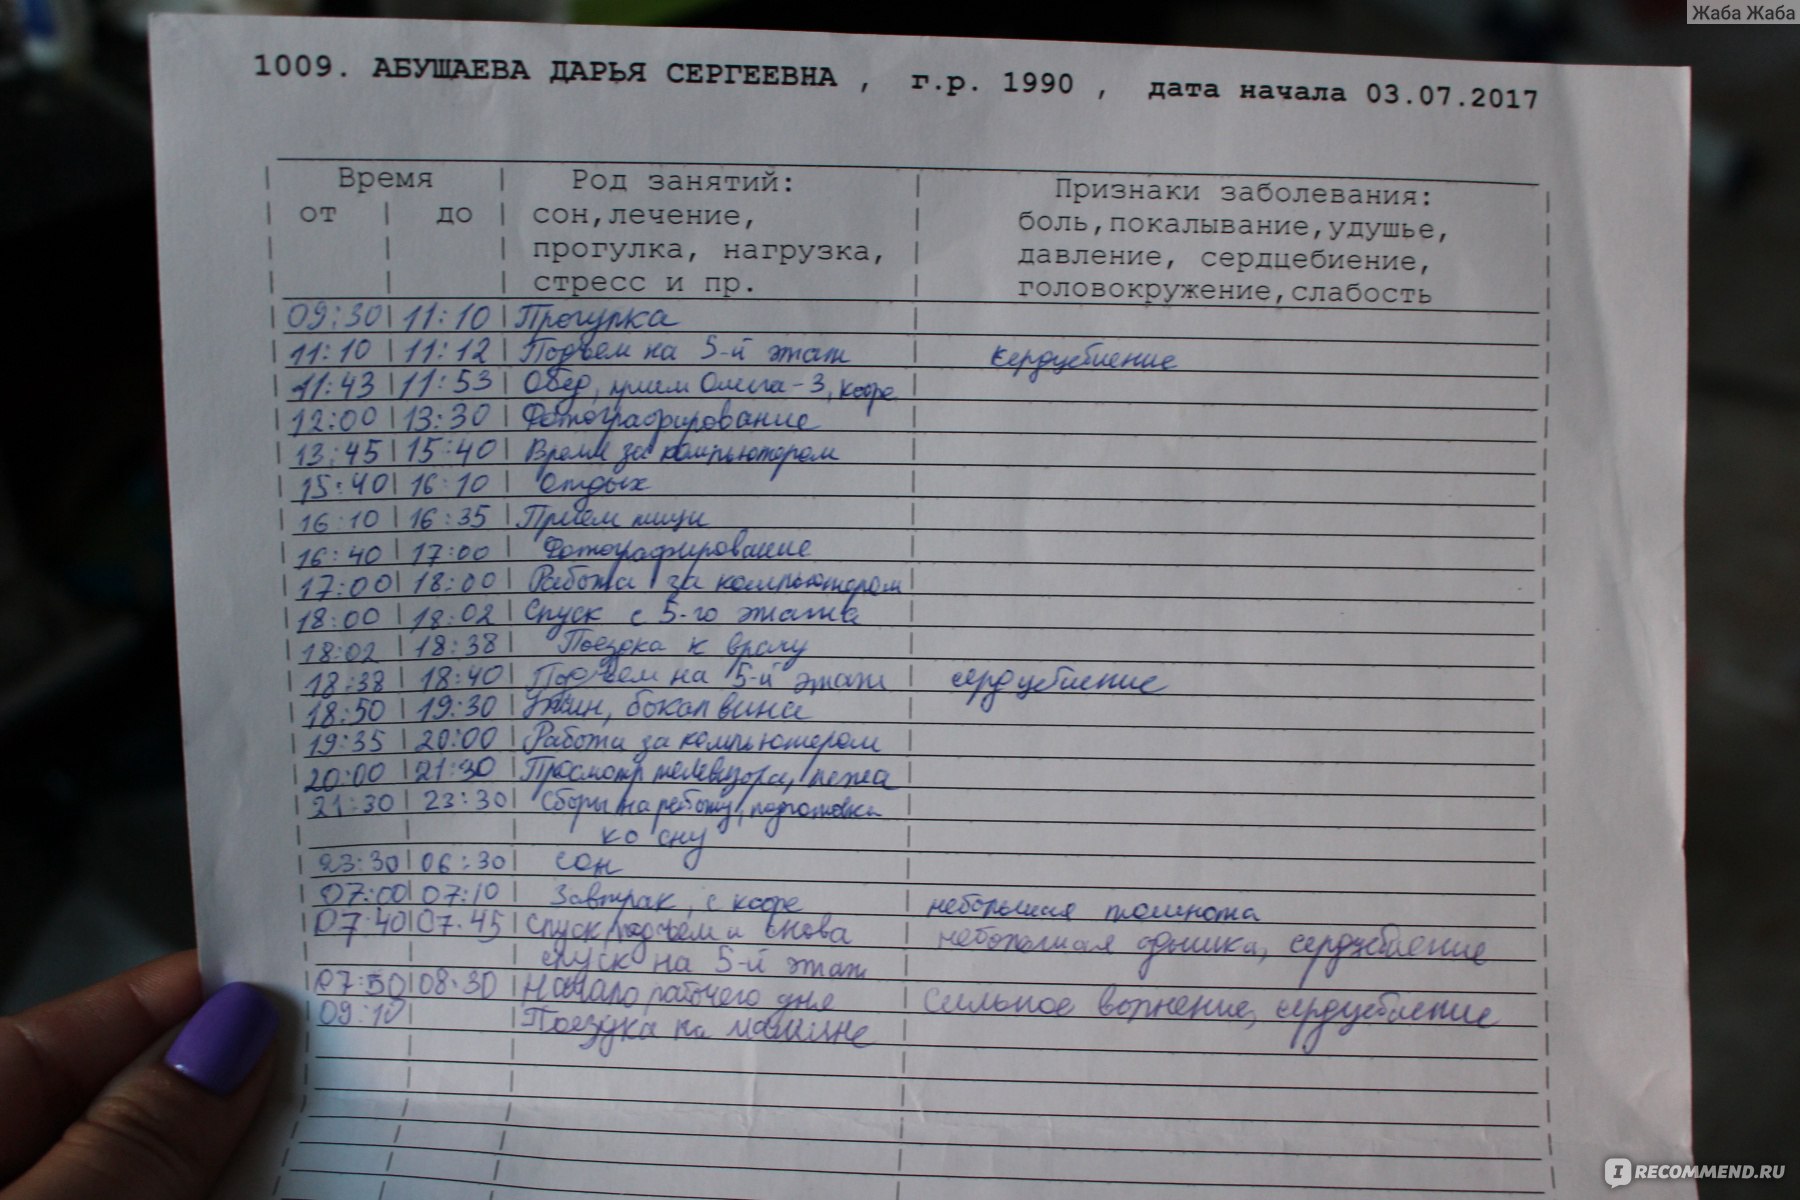 Жаба Жаба
1009. АБУШАЕВА ДАРЬЯ СЕРГЕЕВНА , г.р. 1990 , дата начала 03.07.2017
Время | Род занятий: | Признаки заболевания:
от | до | сон,лечение, боль,покалывание,удушье,
прогулка, нагрузка, | давление, сердцебиение,
стресс и пр. | головокружение,слабость
09:30 | 11:10 | Прогулка
11:10 | 11:12 | Подъем на 5-й этаж | сердцебиение
11:43 | 11:53 | Обед, прием Омега-3, кофе
12:00 | 13:30 | Фотографирование
13:45 | 15:40 | Время за компьютером
15:40 | 16:10 | Отдых
16:10 | 16:35 | Прием пищи
16:40 | 17:00 | Фотографирование
17:00 | 18:00 | Работа за компьютером
18:00 | 18:02 | Спуск с 5-го этажа
18:02 | 18:38 | Поездка к врачу
18:38 | 18:40 | Подъем на 5-й этаж | сердцебиение
18:50 | 19:30 | Ужин, бокал вина
19:35 | 20:00 | Работа за компьютером
20:00 | 21:30 | Просмотр телевизора, лежа
21:30 | 23:30 | Сборы на работу, подготовка
ко сну
23:30 | 06:30 | сон
07:00 | 07:10 | Завтрак, с кофе | небольшая тошнота
07:40 | 07.45 | Спуск, подъем и снова | небольшая одышка, сердцебиение
спуск на 5-й этаж
07:50 | 08:30 | Начало рабочего дня | Сильное волнение, сердцебиение
09:10 | Поездка на машине
IRECOMMEND.RU